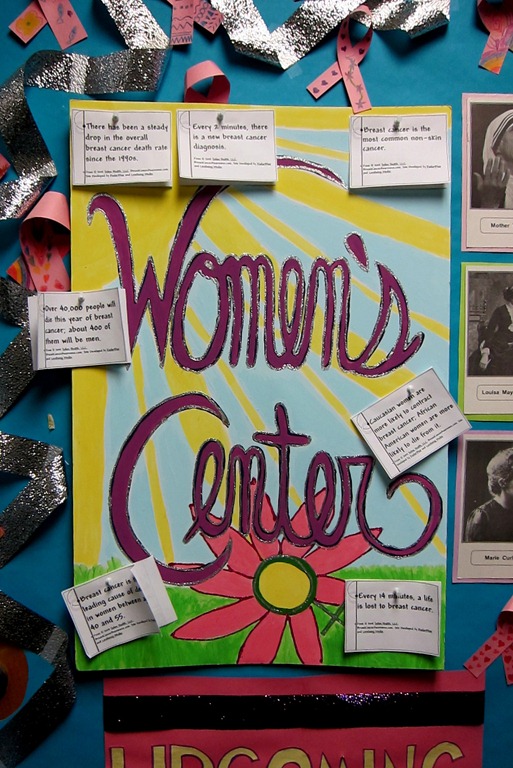 There has been a steady
drop in the overall
breast cancer death rate
since the 1990s.
Every 3 minutes, there
is a new breast cancer
diagnosis.
Breast cancer is the
most common non-skin
cancer.
Women's
Over 40,000 people will
die this year of breast
cancer; about 400 of
them will be men.
Caucasian women are
more likely to contract
breast cancer; African
American women are more
likely to die from it.
Center
Breast cancer is
leading cause of
in women between
40 and 55.
Every 14 minutes, a life
is lost to breast cancer.
Mother
Louisa May
Marie Curi
UPCOMING